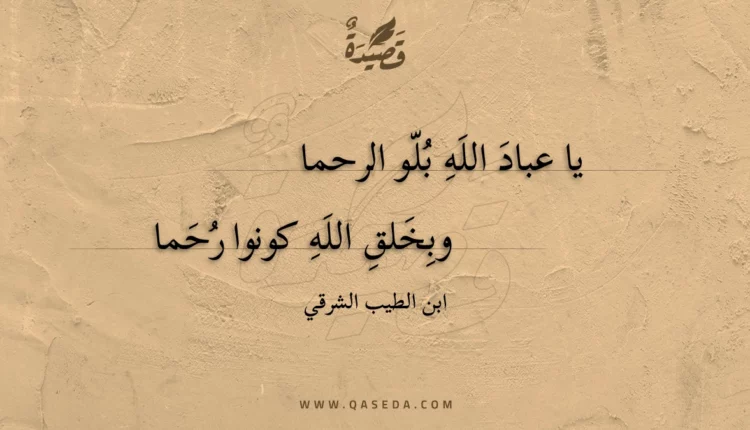 قَصِيْدَةٌ
يا عبادَ اللَهِ بُلّو الرحما
وبِخَلقِ اللَهِ كونوا رُحَما
ابن الطيب الشرقي
WWW.QASEDA.COM